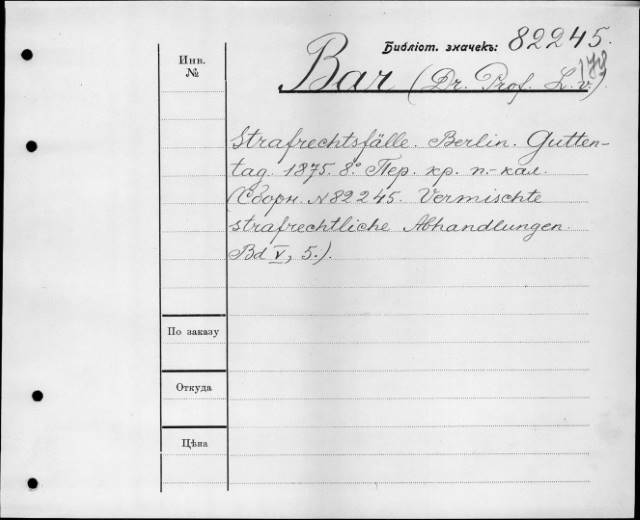 Библіот. значекъ: 82245.
Инв.
№
Bar (Dr. Prof. L. v.)
Strafrechtsfälle. Berlin. Gutten-
tag. 1875. 8.° Пер. хр. п.-кал.
(Сборн. № 82245. Vermischte
strafrechtliche Abhandlungen.
Bd V, 5.).
По заказу
Откуда
Цѣна